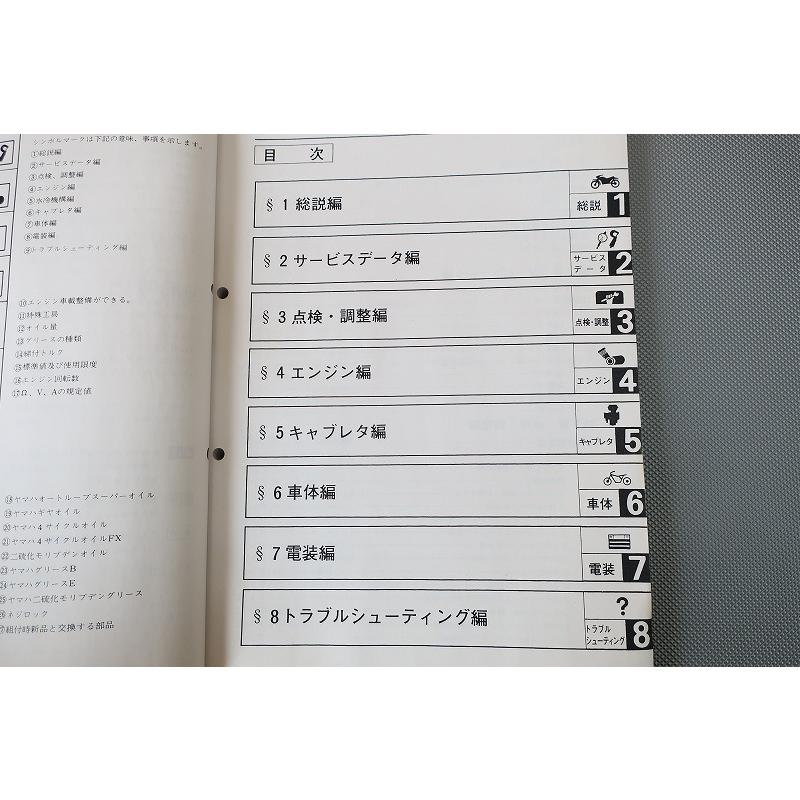 シンボルマークは下記の意味、事項を示します。
①総説編
②サービスデータ編
③点検、調整編
④エンジン編
⑤水冷機構編
⑥キャブレタ編
⑦車体編
⑧電装編
⑨トラブルシューティング編
⑩エンジン車載整備ができる。
⑪特殊工具
⑫オイル量
⑬グリースの種類
⑭締付トルク
⑮標準値及び使用限度
⑯エンジン回転数
⑰Ω、V、Aの規定値
⑱ヤマハオートルーブスーパーオイル
⑲ヤマハギヤオイル
⑳ヤマハ4サイクルオイル
㉑ヤマハ4サイクルオイルFX
㉒二硫化モリブデンオイル
㉓ヤマハグリースB
㉔ヤマハグリースE
㉕ヤマハ二硫化モリブデングリース
㉖ネジロック
㉗組付時新品と交換する部品
目 次
§1総説編
総説 1
§2サービスデータ編
サービス
データ 2
§3点検・調整編
点検・調整 3
§4エンジン編
エンジン 4
§5キャブレタ編
キャブレタ 5
§6車体編
車体 6
§7電装編
電装 7
§8トラブルシューティング編
?
トラブル
シューティング 8